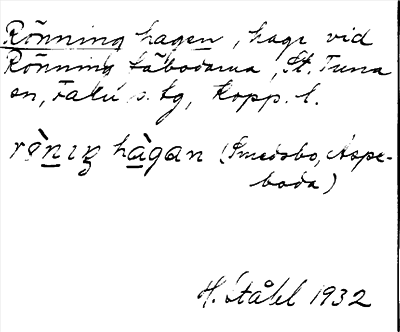 Rönning hagen, hage vid
Rönning fäbodarna, St. Tuna
sn, Falu s. lg, Kopp. l.
rø̀nıŋ hàgan (Smedsbo, Aspe-
boda)
H. Ståhl 1932